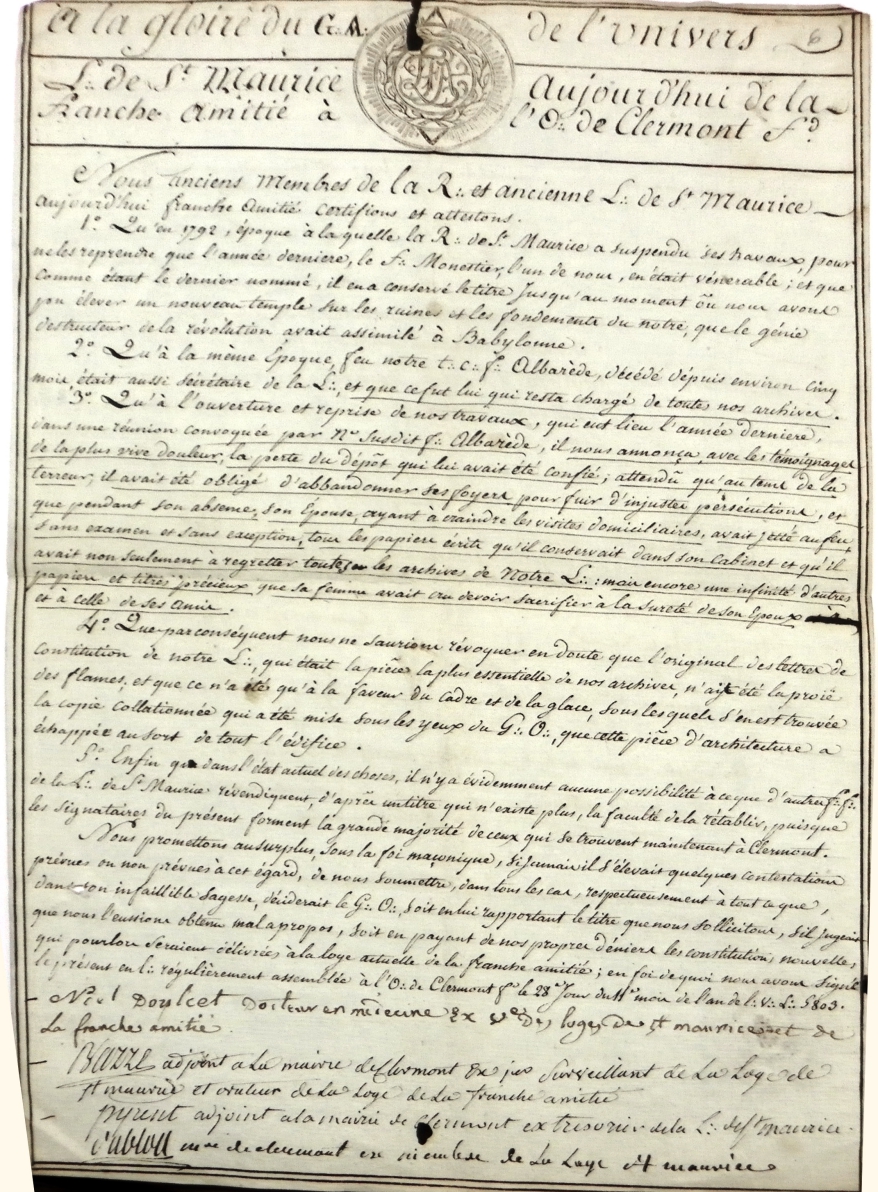 a la gloire du G.·. A.·. de l'Univers 6
L.·. de St Maurice Aujourd'hui de la
franche Amitié à l'O.·. de Clermont fd
Nous anciens Membres de la R.·. et ancienne L.·. de St Maurice
aujourd'hui franche Amitié certifions et attestons.
1º. Qu'en 1792, époque à la quelle la R.·. de St. Maurice a suspendu ses travaux, pour
ne les reprendre que l'année derniere, le f.·. Monestier, l'un de nous, en était vénérable; et que
comme étant le dernier nommé, il en a conservé le titre jusqu'au moment où nous avons
pu élever un nouveau temple sur les ruines et les fondements du notre, que le génie
destructeur de la révolution avait assimilé à Babylonne.
2º. Qu'à la même Epoque, feu notre t.·. c.·. f.·. Albarède, décédé depuis environ cinq
mois, était aussi sécrétaire de la L.·., et que ce fut lui qui resta chargé de toutes nos archives.
3º. Qu'à l'ouverture et reprise de nos travaux, qui eut lieu l'année derniere,
dans une réunion convoquée par Ne susdit f.·. Albarède, il nous annonça, avec les témoignages
de la plus vive douleur, la perte du dépôt qui lui avait été confié; attendu qu'au tems de la
terreur, il avait été obligé d'abbandonner ses foyers pour fuir d'injustes persécutions, et
que pendant son absence, son Epouse ayant à craindre les visites domiciliaires, avait jetté au feu,
sans examen et sans exception, tous les papiers écrits qu'il conservait dans son Cabinet et qu'il
avait non seulement à regretter toutes les archives de Notre L.·. : mais encore une infinité d'autres
papiers et titres précieux que sa femme avait cru devoir sacrifier à la sureté de son Epoux
et à celle de ses amis.
4º. Que par conséquent nous ne saurions révoquer en doute que l'original des lettres de
Constitution de notre L.·., qui était la pièce la plus essentielle de nos archives, n'ait été la proië
des flames, et que ce n'a été qu'à la faveur du cadre et de la glace, sous les quels s'en est trouvée
la copie collationnée qui a été mise sous les yeux du G.·. O.·., que cette pièce d'architecture a
échappée au sort de tout l'édifice.
5º. Enfin que dans l'état actuel des choses, il n'y a évidemment aucune possibilité à ce que d'autres f.·. f.·.
de la L.·. de St Maurice révendiquent, d'après un titre qui n'existe plus, la faculté de la rétablir, puisque
les signataires du présent forment la grande majorité de ceux qui se trouvent maintenant à Clermont.
Nous promettons au surplus, sous la foi maçonique, si jamais il s'élevait quelques contestations
prévues ou non prévues à cet égard, de nous soumettre, dans tous les cas, respectueusement à tout ce que,
dans son infaillible sagesse, déciderait le G.·. O.·., soit en lui rapportant le titre que nous sollicitons, s'il jugeait
que nous l'eussions obtenu mal apropos, soit en payant de nos propres déniers les constitutions nouvelles
qui pourlors seraient délivrées à la loge actuelle de la franche amitié; en foi de quoi nous avons signé
le présent en l.·. régulièrement assemblée à l'O.·. de Clermont fd le 28e Jour du 11e mois de l'an de l.·. V.·. L.·. 5803.
Doulcet Docteur en médecine Ex Vble des loges de st maurice et de
La franche amitié.
adjoint a La mairie de Clermont Ex per Surveillant de La Loge de
st maurice et orateur de La Loge de La franche amitié
adjoint a la mairie de Clermont ex tresorier de la L.·. de St maurice
de clermont ex membre de La Loge st maurice